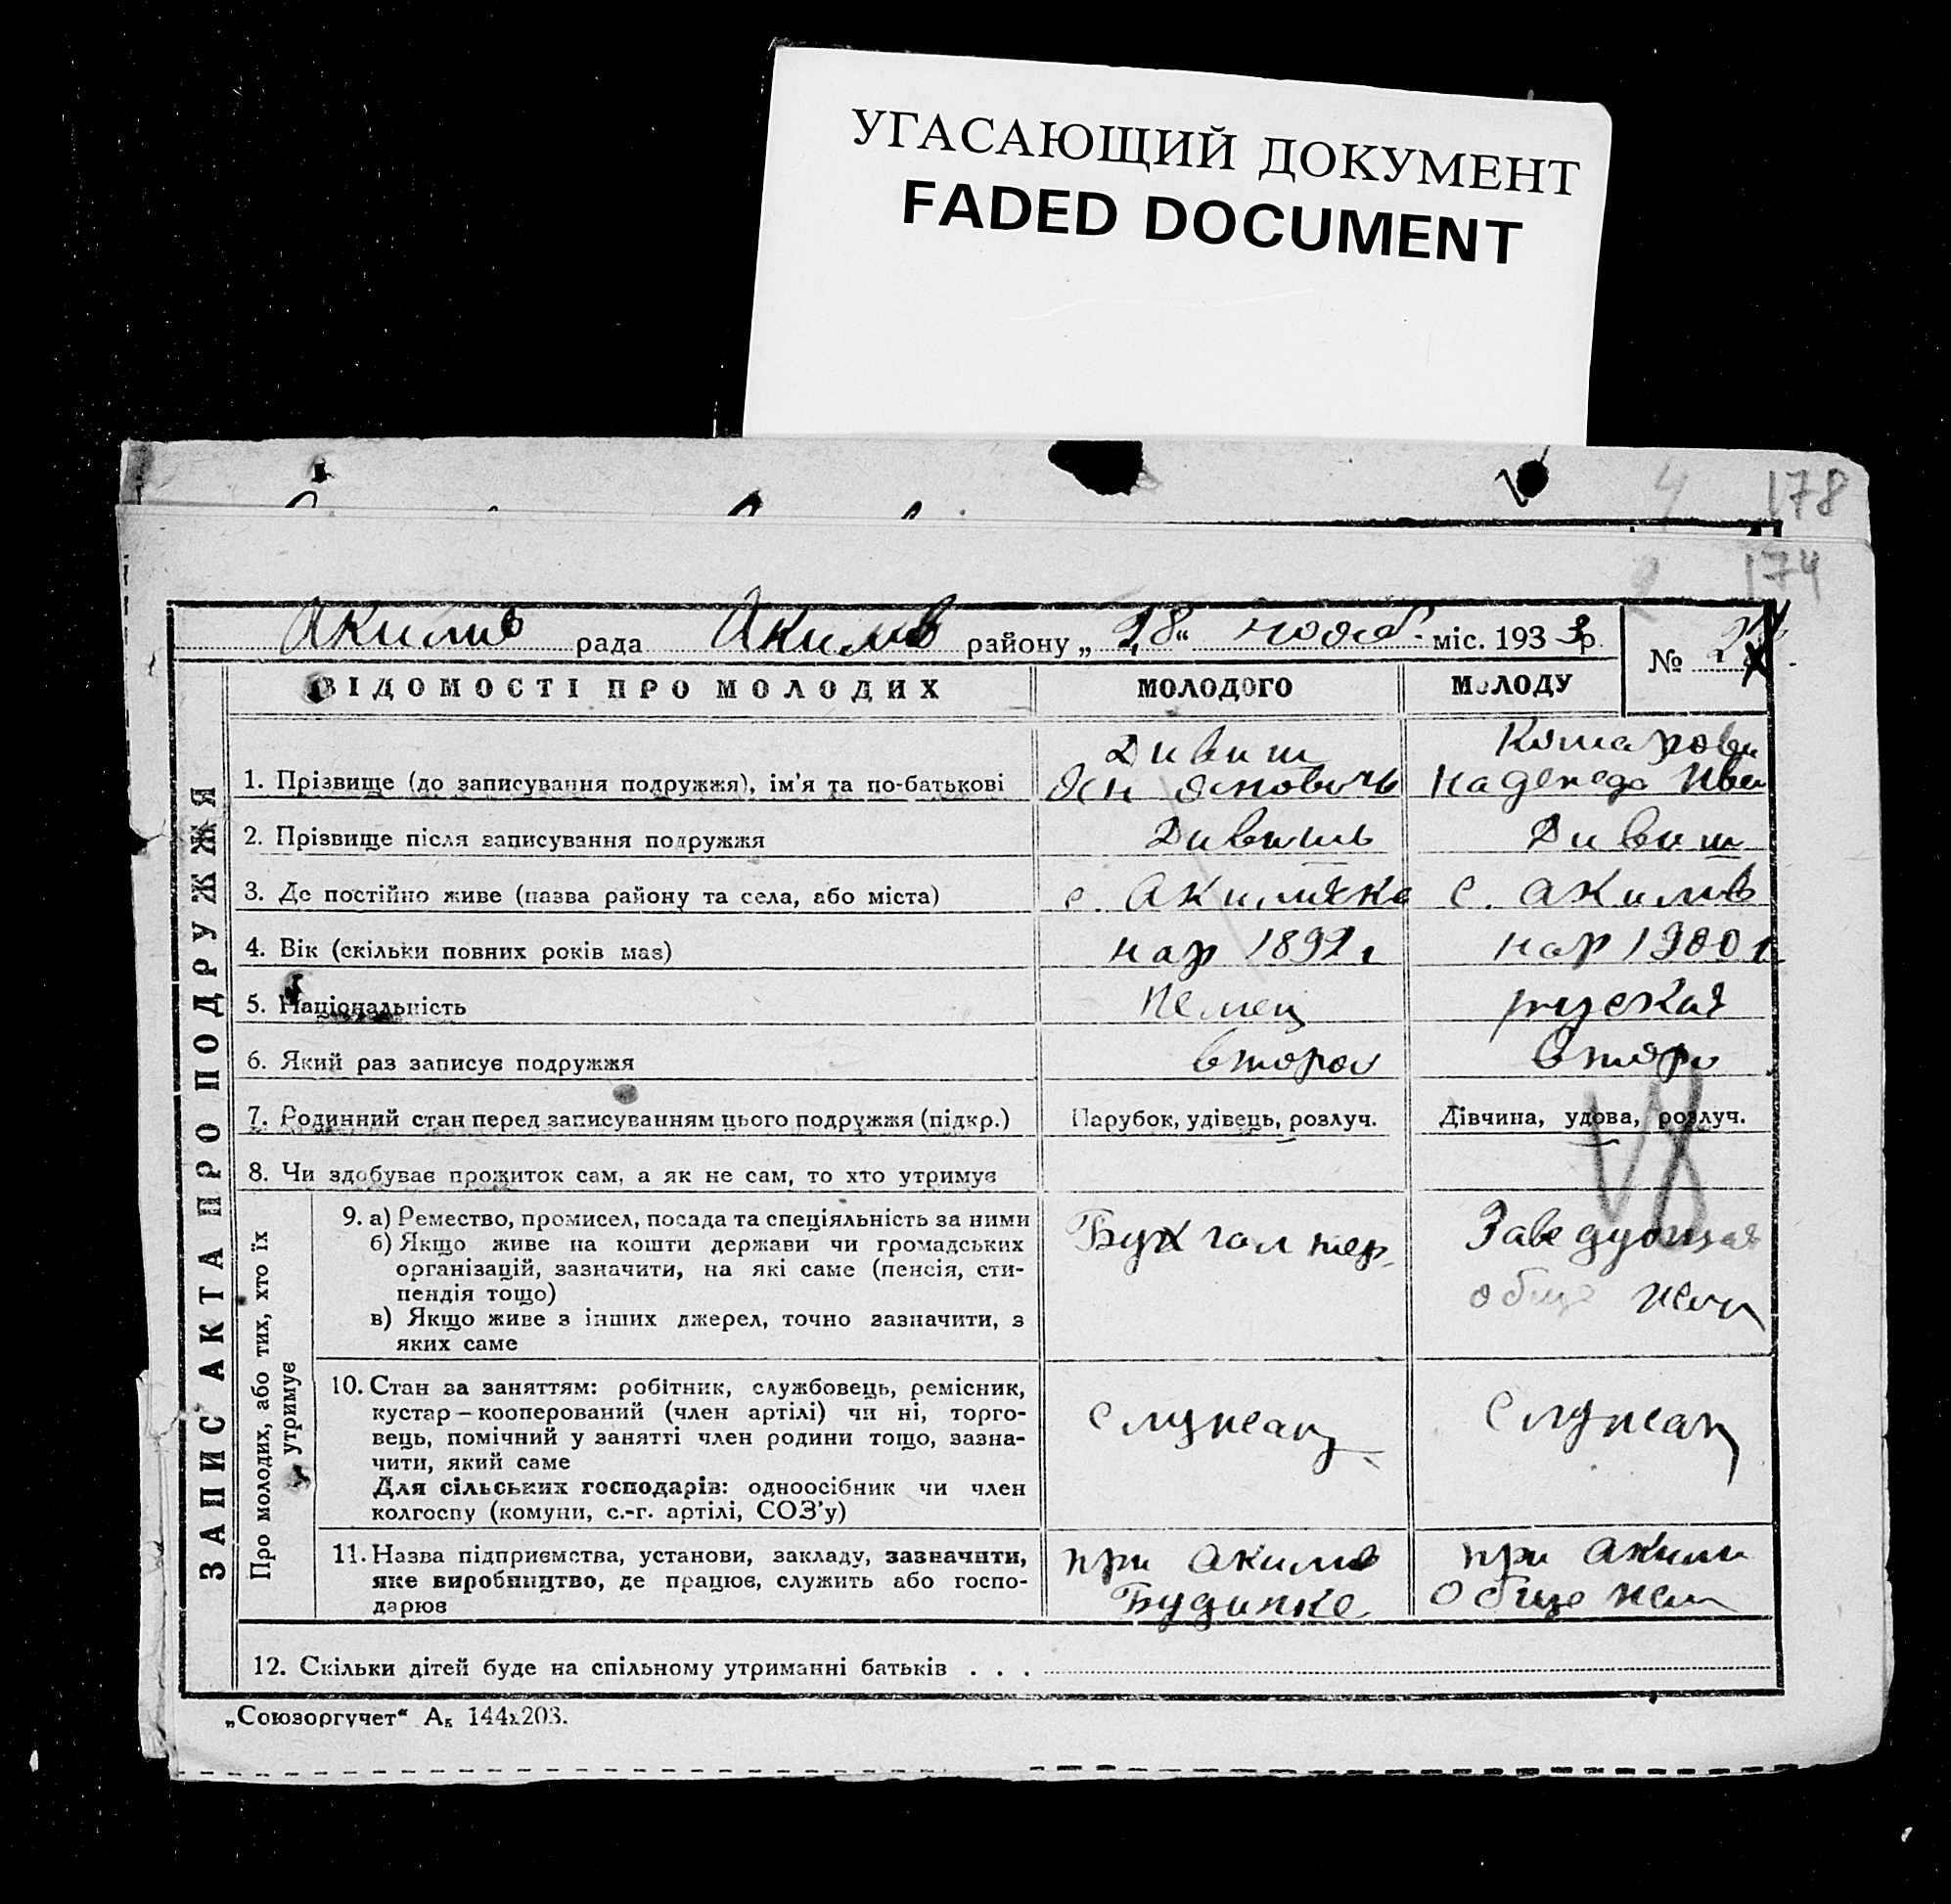 УГАСАЮЩИЙ ДОКУМЕНТ
FADED DOCUMENT
178
174
Акимів рада Акимів району „28“ нояб. міс. 1933р. №
ВІДОМОСТІ ПРО МОЛОДИХ МОЛОДОГО МОЛОДУ
ЗАПИС АКТА ПРО ПОДРУЖЖЯ
1. Прізвище (до записування подружжя), ім'я та по-батькові
Дивиш
Ян Янович
Комарова
Надежда Иван
2. Прізвище після записування подружжя Дивишь Дивиш
3. Де постійно живе (назва району та села, або міста) с. Акимовка с. Акимов
4. Вік (скільки повних років має) нар 1892 г нар 1900 г
5. Національність Немец русская
6. Який раз записує подружжя второй втор
7. Родинний стан перед записуванням цього подружжя (підкр.) Парубок, удівець, розлуч. Дівчина, удова, розлуч.
8. Чи здобуває прожиток сам, а як не сам, то хто утримує
Про молодих, або тих, хто їх
утримує
9. а) Ремество, промисел, посада та спеціяльність за ними
б) Якщо живе на кошти держави чи громадських
організацій, зазначити, на які саме (пенсія, сти-
пендія тощо)
в) Якщо живе з інших джерел, точно зазначити, з
яких саме
Бухгалтер
Заведующая
общежит
10. Стан за заняттям: робітник, службовець, ремісник,
кустар – кооперований (член артілі) чи ні, торго-
вець, помічний у занятті член родини тощо, зазна-
чити, який саме
Для сільських господарів: одноосібник чи член
колгоспу (комуни, с.-г. артілі, СОЗ'у)
служащ
служащ
11. Назва підприємства, установи, закладу, зазначити,
яке виробництво, де працює, служить або госпо-
дарює
при Акимов
Будинке
при Акими
общежит
12. Скільки дітей буде на спільному утриманні батьків . . .
„Союзоргучет“ А₅ 144х203.